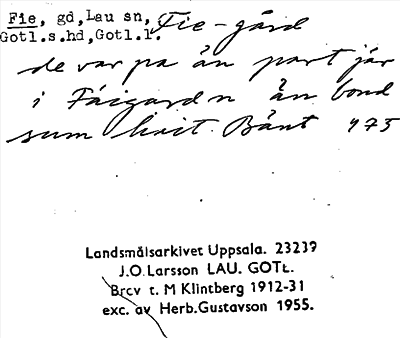 Fie, gd, Lau sn, Fie-gård
Gotl.s.hd, Gotl.l.
de var pa än part jär
i Fáigardn än bond
sum hait Bänt 475
Landsmålsarkivet Uppsala. 23239
J.O. Larsson LAU. GOTL.
Brev t. M Klintberg 1912-31
exc. av Herb. Gustavson 1955.